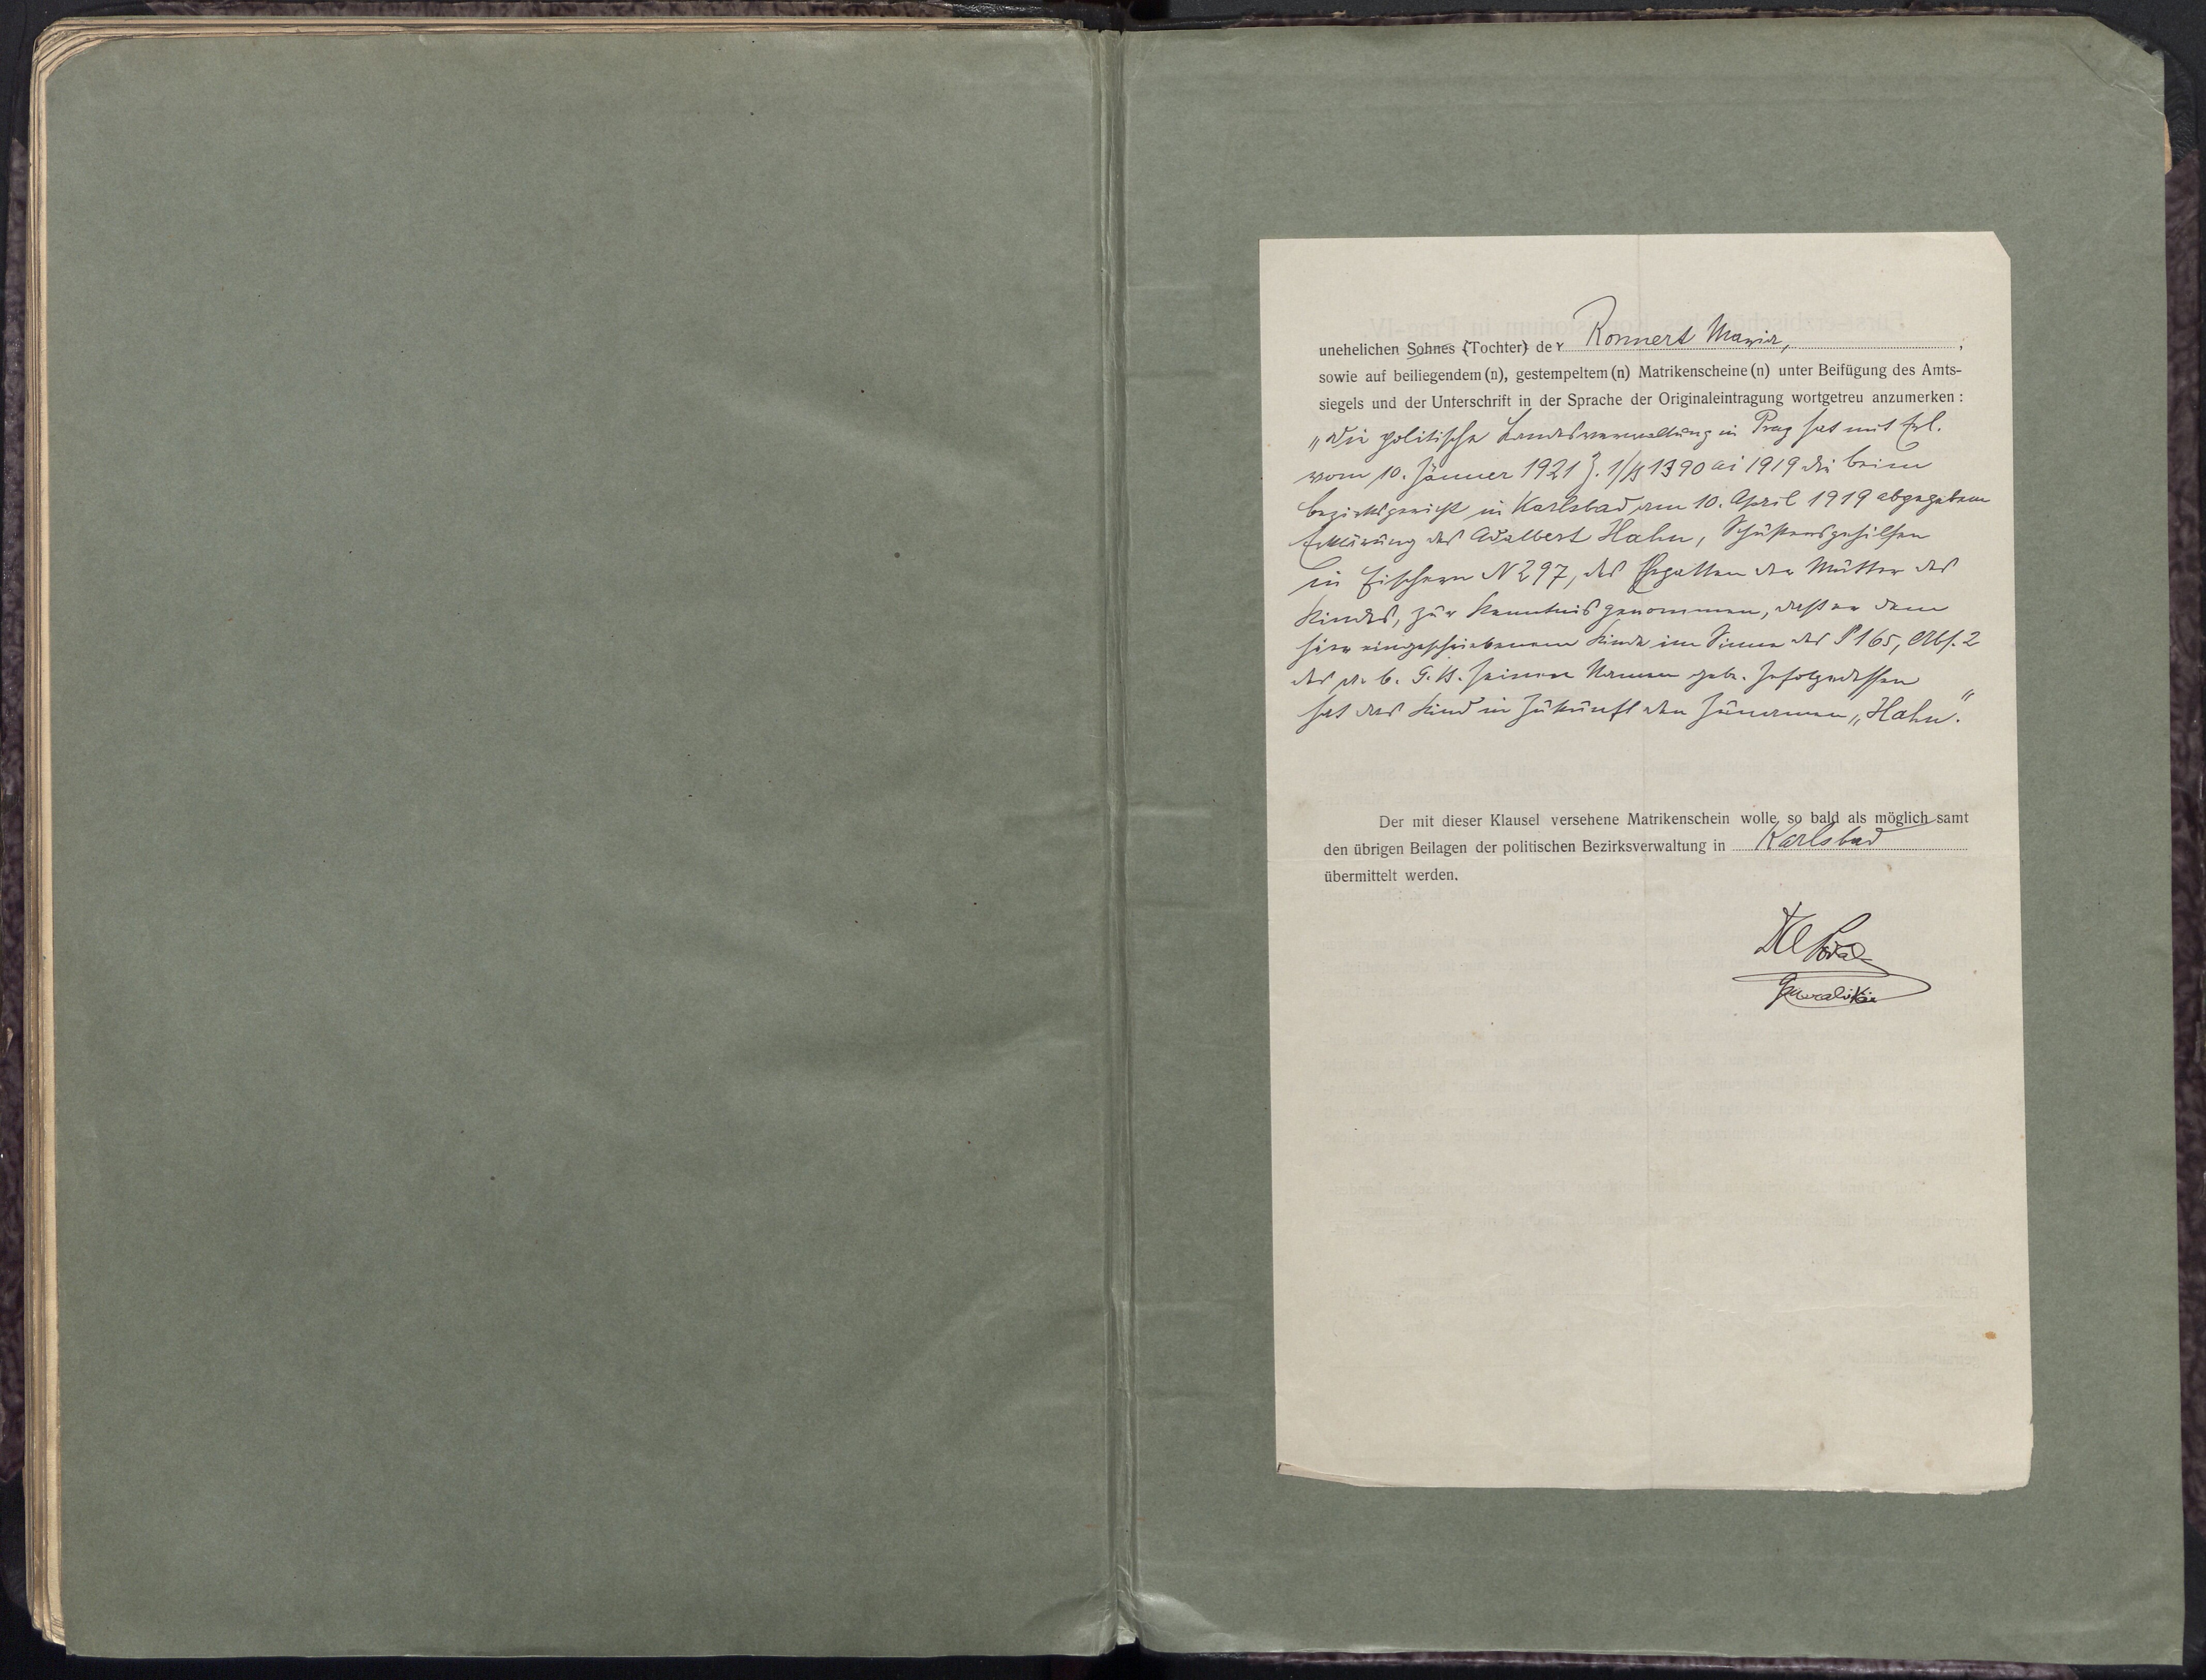 unehelichen Sohnes (Tochter) der Ronnert Maria,
sowie auf beiliegendem (n), gestempeltem (n) Matrikenscheine (n) unter Beifügung des Amts-
siegels und der Unterschrift in der Sprache der Originaleintragung wortgetreu anzumerken :
„Die politische Landesverwaltung in Prag hat mit Erl.
vom 10. Jänner 1921 Z. 1/B 1390 ai 1919 die beim
Bezirksgericht in Karlsbad am 10. April 1919 abgegebene
Erklärung des Adalbert Hahn, Schustergehilfen
in Fischern N 297, des Ehegatten der Mutter des
Kindes, zur Kenntnis genommen, daß er dem
hier eingeschriebenen Kinde im Sinne des § 165, Abs. 2
des a. b. G. B. seinen Namen gebe. Zufolgedessen
hat das Kind in Zukunft den Zunamen „Hahn“.
Der mit dieser Klausel versehene Matrikenschein wolle so bald als möglich samt
den übrigen Beilagen der politischen Bezirksverwaltung in Karlsbad
übermittelt werden.
Generalvikar